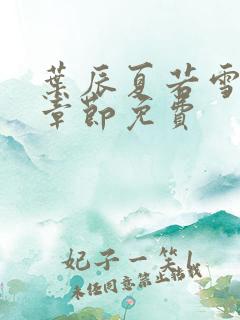 葉辰夏若雪
章節免費
妃子一笑/
未经同意禁止转载